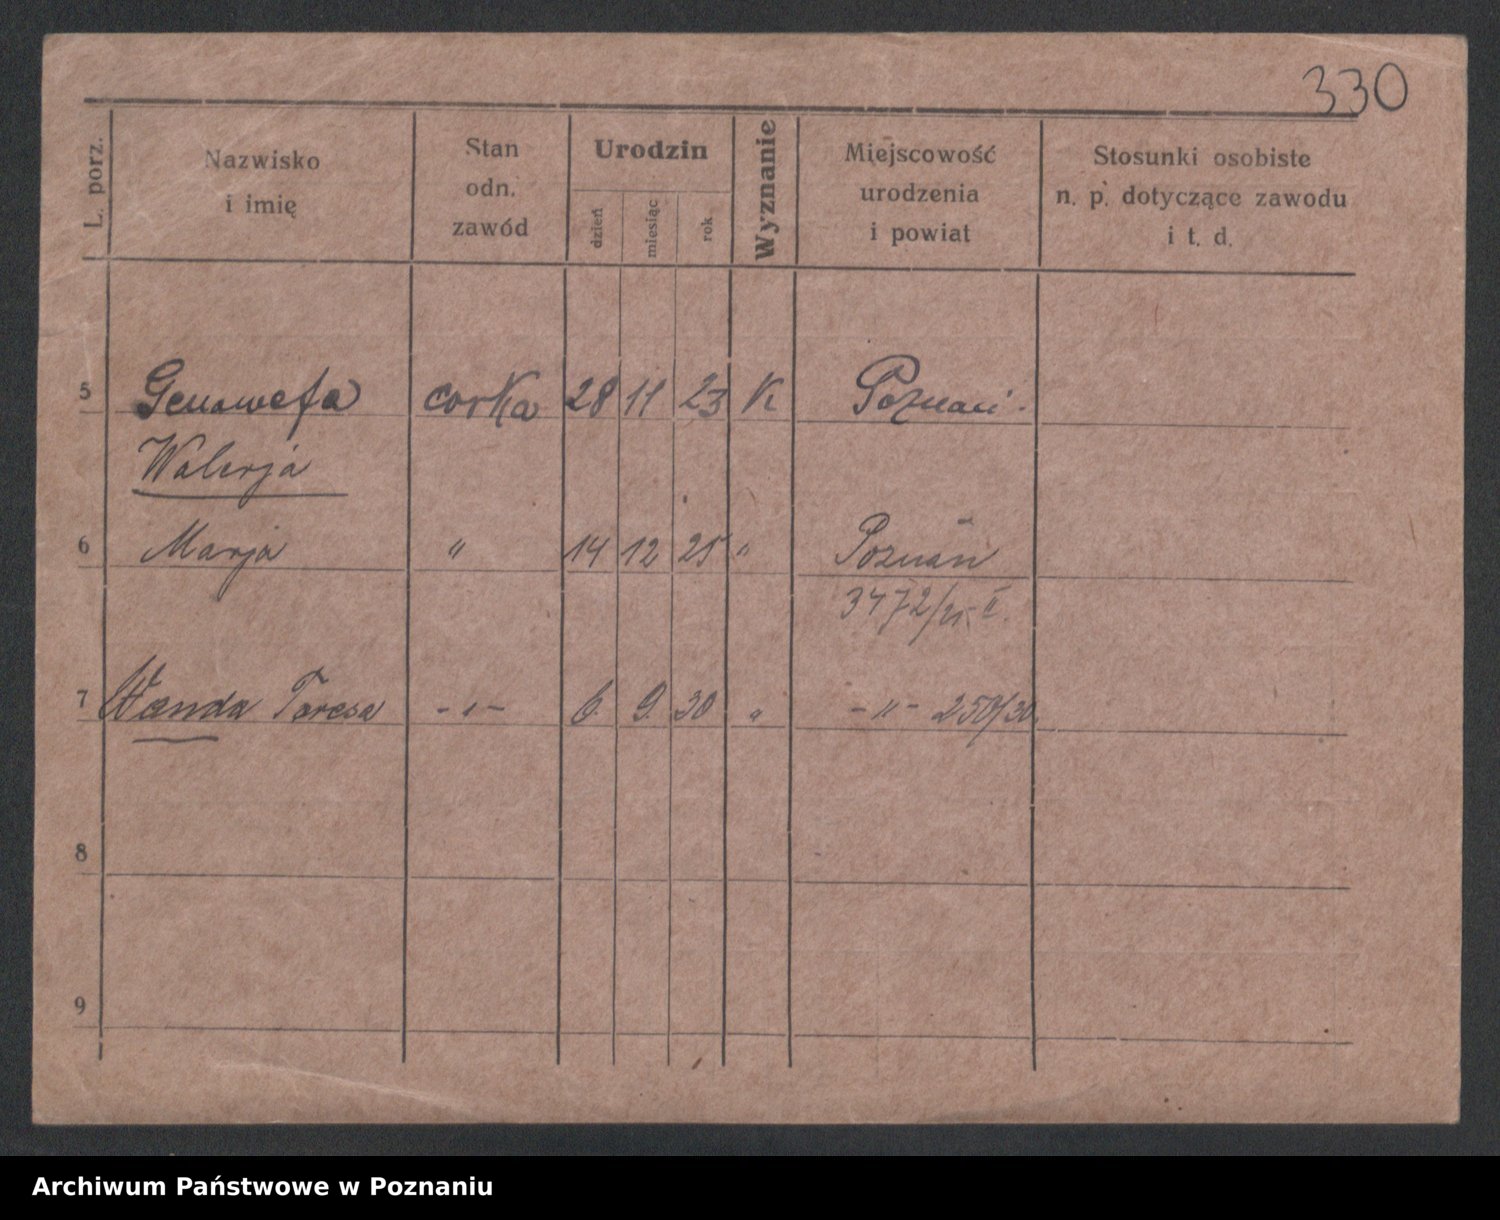 330
L. porz. Nazwisko i imię Stan odn. zawód Urodzin dzień miesiąc rok Wyznanie Miejscowość urodzenia i powiat Stosunki osobiste n. p. dotyczące zawodu i t. d.
5 Genowefa corka 28 11 23 K Poznań.
Walerja
6 Marja " 14 12 25 " Poznań
3472/25 II.
7 Wanda Teresa -"- 6 9. 30 " -"- 250/30
8
9
Archiwum Państwowe w Poznaniu